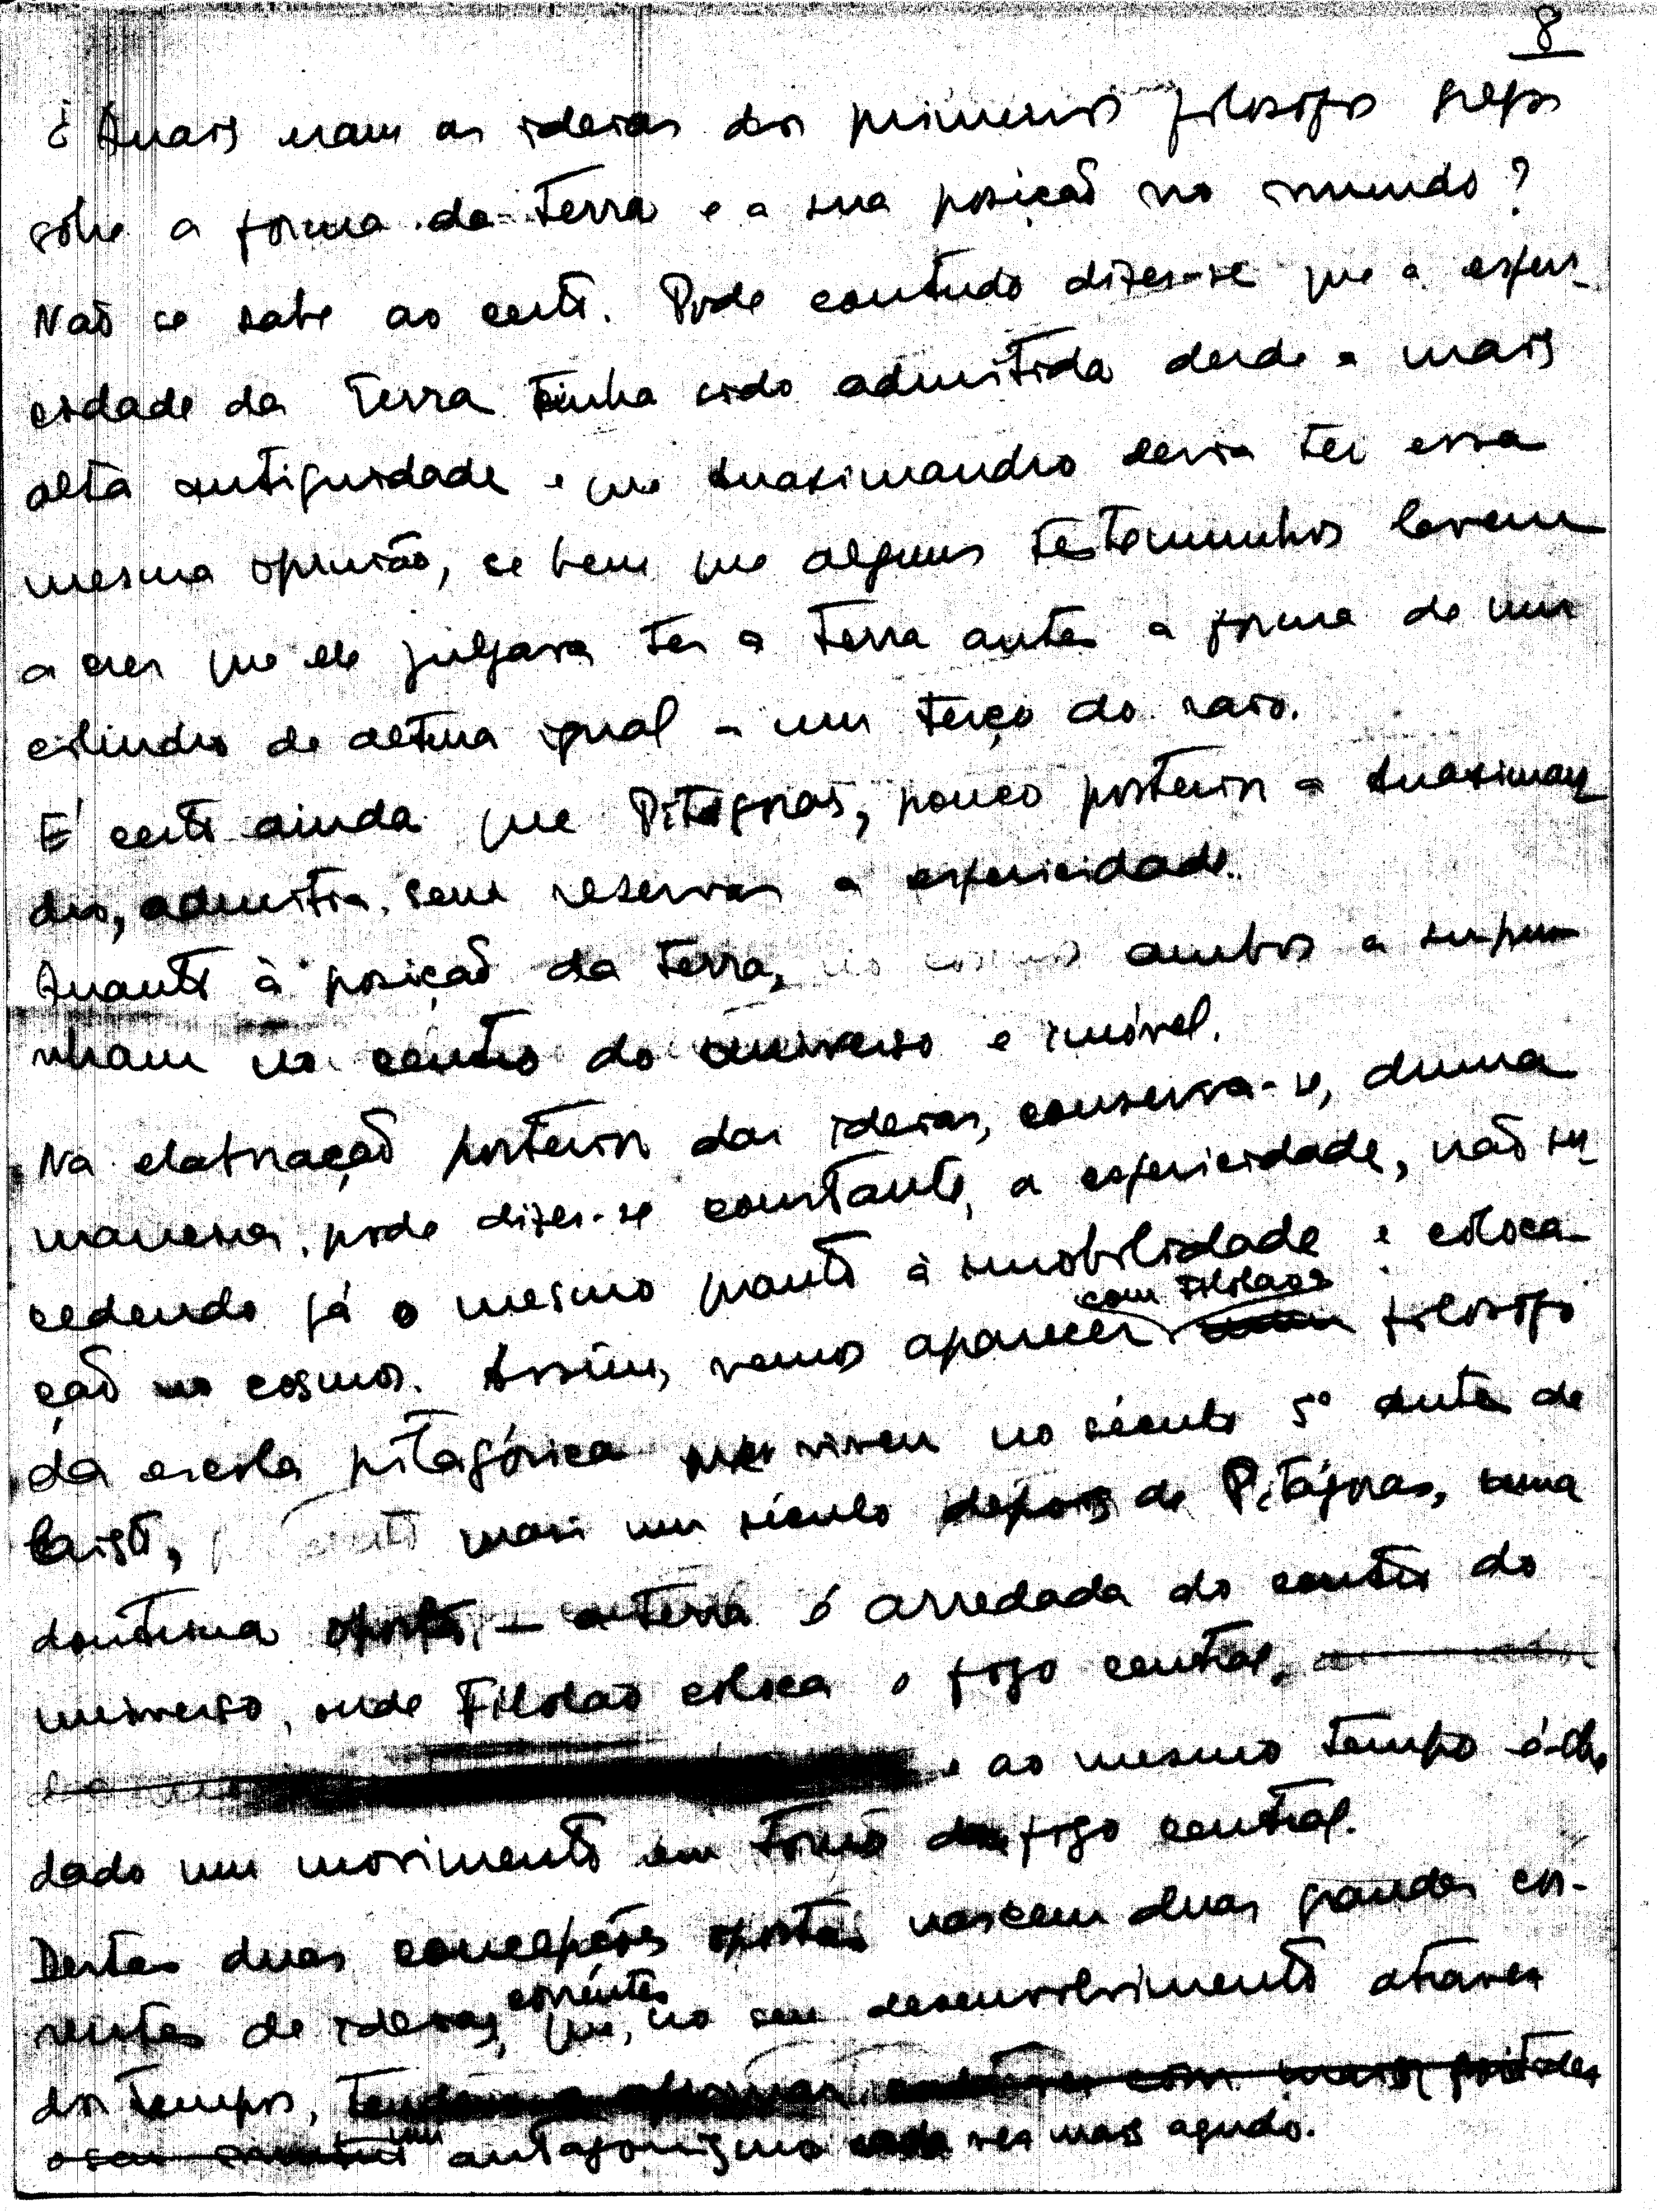 8
¿ Quais eram as ideias dos primeiros filosofos gregos
sôbre a forma da Terra e a sua posição no mundo?
Não se sabe ao certo. Pode contudo dizer-se que a esferi-
cidade da Terra tinha sido admitida desde a mais
alta antiguidade e que Anaximandro devia ter essa
mesma opinião, se bem que alguns testemunhos levem
a crer que ele julgava ter a Terra antes a forma de um
cilindro de altura igual a um terço do raio.
É certo ainda que Pitágoras, pouco posterior a Anaximan-
dro, admitia sem reservas a esfericidade.
Quanto à posição da Terra, ambos a supu-
nham no centro do universo e imóvel.
Na elaboração posterior das ideias, conserva-se, duma
maneira, pode dizer-se constante, a esfericidade, não su-
cedendo já o mesmo quanto à imobilidade e coloca-
ção no cosmos. Assim, vemos aparecer com Filolaos filosofo
da escola pitagórica que viveu no século 5º antes de
Cristo, mais um século depois de Pitágoras, uma
doutrina oposta, – a Terra é arredada do centro do
universo, onde Filolao coloca o fogo central,
e ao mesmo tempo é-lhe
dado um movimento em torno do fogo central.
Destas duas concepções opostas nascem duas grandes cor-
rentes de ideias, correntes que, no seu desenvolvimento atraves
dos tempos,
um antagonismo cada vez mais agudo.